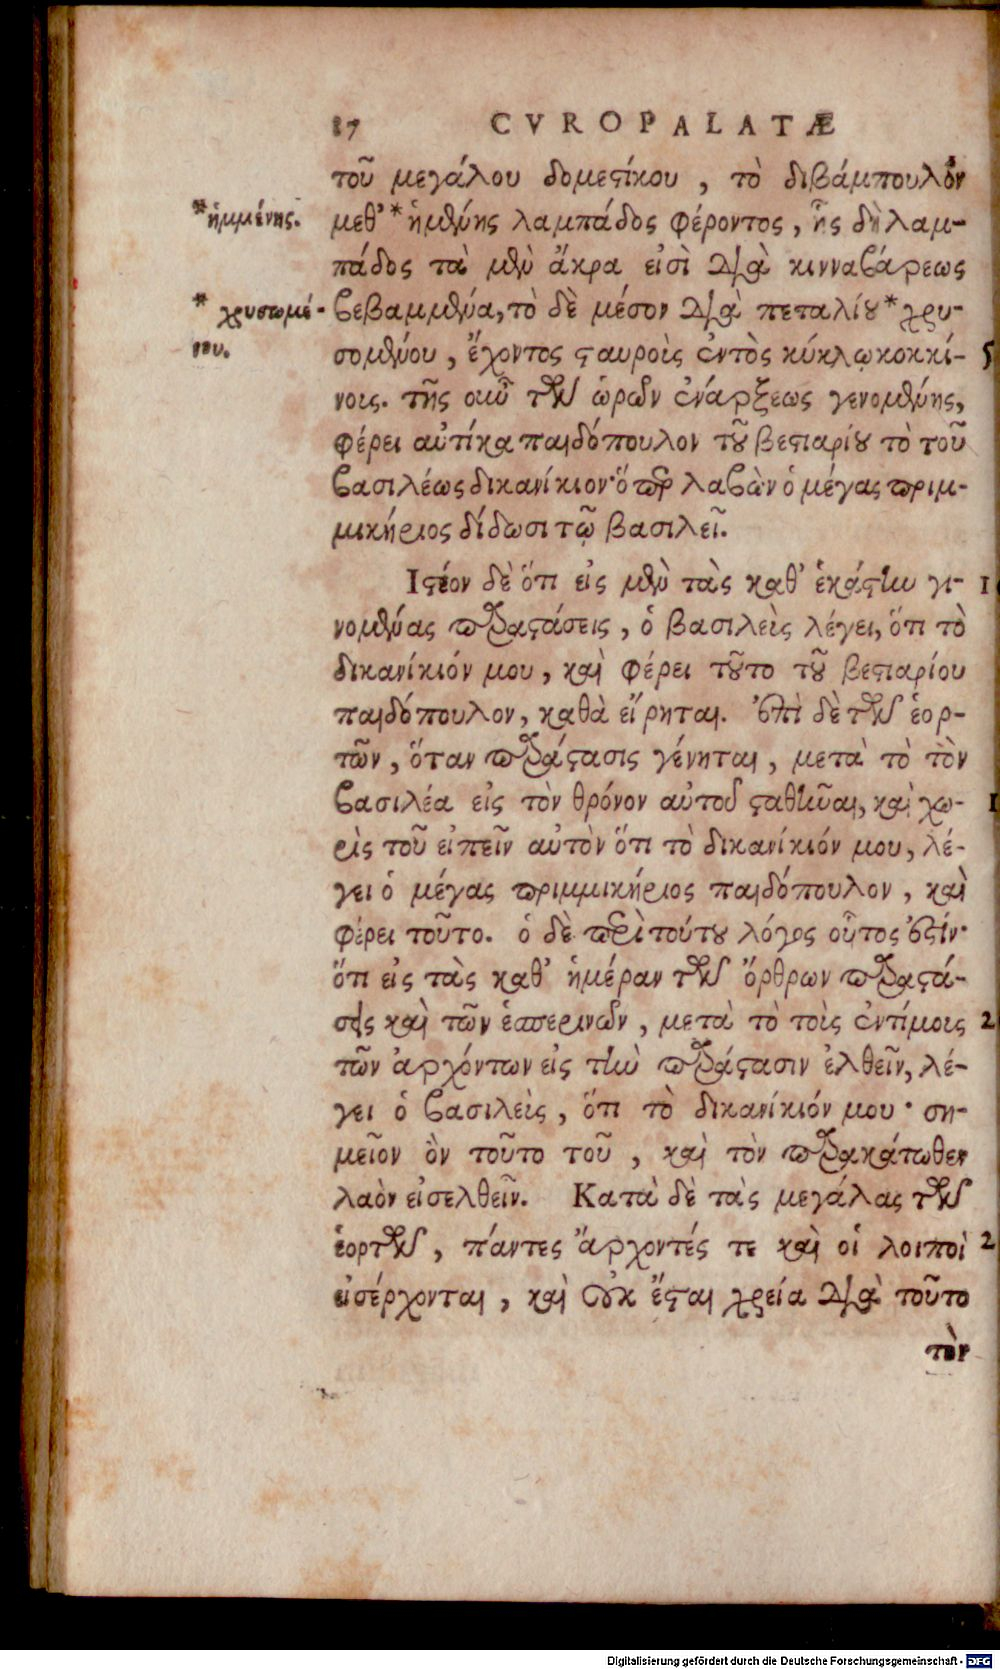 87 CVROPALATÆ
τοῦ μεγάλου δομεστίκου, τὸ διβάμπουλον
*ἡμμένης.
μεθ’ *ἡμμένης λαμπάδος φέροντος, ἧς δὴ λαμ-
πάδος τὰ μὲν ἄκρα εἰσὶ διὰ κινναβάρεως
* χρυσωμέ-
νου.
βεβαμμένα, τὸ δὲ μέσον διὰ πεταλίου *χρυ-
σομένου, ἔχοντος σταυροὶς ἐντὸς κύκλῳ κοκκί- 5
νοις. τῆς οὖν τῶν ὡρῶν ἐνάρξεως γενομένης,
φέρει αὐτίκα παιδόπουλον τοῦ βεστιαρίου τὸ τοῦ
βασιλέως δικανίκιον· ὅπερ λαβὼν ὁ μέγας πριμ-
μικήριος δίδωσι τῷ βασιλεῖ.
Ιστέον δὲ ὅτι εἰς μὲν τὰς καθ’ ἑκάστην γι- 1
νομένας παραστάσεις, ὁ βασιλεὶς λέγει, ὅτι τὸ
δικανίκιόν μου, καὶ φέρει τοῦτο τοῦ βεστιαρίου
παιδόπουλον, καθὰ εἴρηται. ἐπὶ δὲ τῶν ἑορ-
τῶν, ὅταν παράστασις γένηται, μετὰ τὸ τὸν
βασιλέα εἰς τὸν θρόνον αὐτοῦ σταθῆναι, καὶ χω- 1
ρὶς τοῦ εἰπεῖν αὐτὸν ὅτι τὸ δικανίκιόν μου, λέ-
γει ὁ μέγας πριμμικήριος παιδόπουλον, καὶ
φέρει τοῦτο. ὁ δὲ περὶ τούτου λόγος οὗτος ἐστίν·
ὅτι εἰς τὰς καθ’ ἡμέραν τῶν ὄρθρων παραστά-
σεις καὶ τῶν ἑσπερινῶν, μετὰ τὸ τοὶς ἐντίμοις 2
τῶν ἀρχόντων εἰς τὴν παράστασιν ἐλθεῖν, λέ-
γει ὁ βασιλεὶς, ὅτι τὸ δικανίκιόν μου· ση-
μεῖον ὂν τοῦτο τοῦ, καὶ τὸν παρακάτωθεν
λαὸν εἰσελθεῖν. Κατὰ δὲ τὰς μεγάλας τῶν
ἑορτῶν, πάντες ἄρχοντές τε καὶ οἱ λοιποὶ 2
εἰσέρχονται, καὶ οὐκ ἔσται χρεία διὰ τοῦτο
τὸν
Digitalisierung gefördert durch die Deutsche Forschungsgemeinschaft - DFG